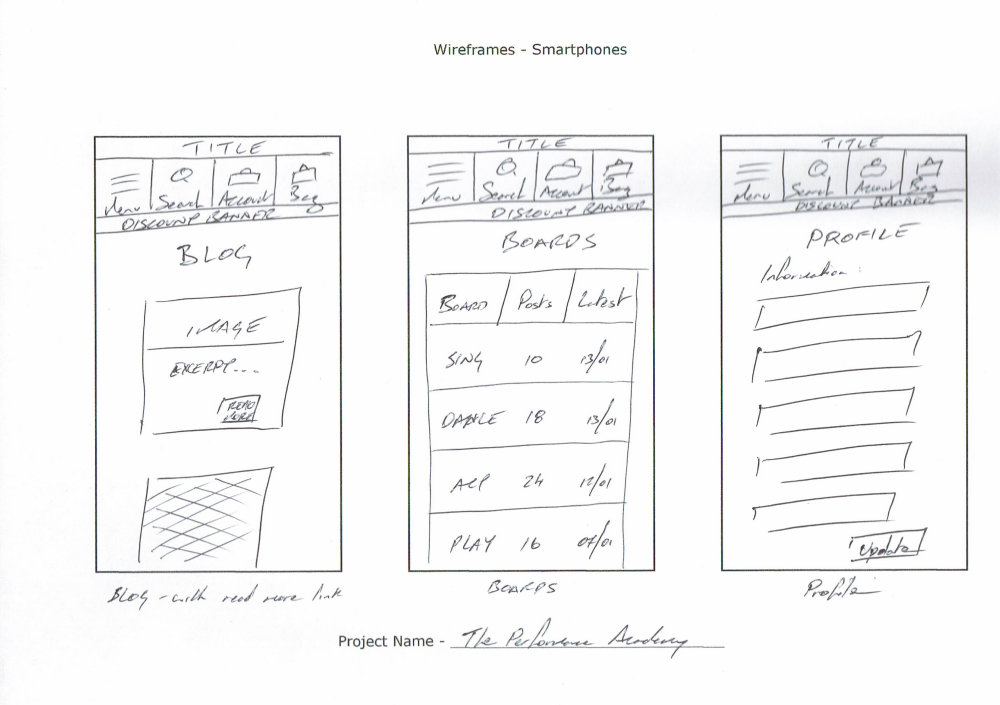 Wireframes - Smartphones
TITLE
Menu Search Account Bag
DISCOUNT BANNER
BLOG
IMAGE
EXCERPT...
READ
MORE
BLOG - with read more link
TITLE
Menu Search Account Bag
DISCOUNT BANNER
BOARDS
BOARD Posts Latest
SING 10 13/01
DANCE 18 13/01
ACP 24 12/01
PLAY 16 07/01
BOARDS
TITLE
Menu Search Account Bag
DISCOUNT BANNER
PROFILE
Information:
Update
Profile
Project Name - The Performance Academy